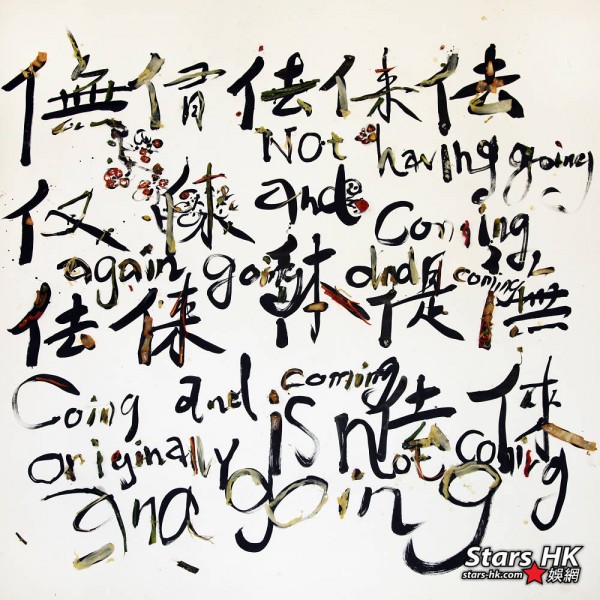 㒇侑佉倈佉
Not having going
仅倈 and Coming
again going and coming
佉倈体偍㒇
Coing and coming
佉倈
originally is not coming
and going
Stars HK
stars-hk.com 娛網